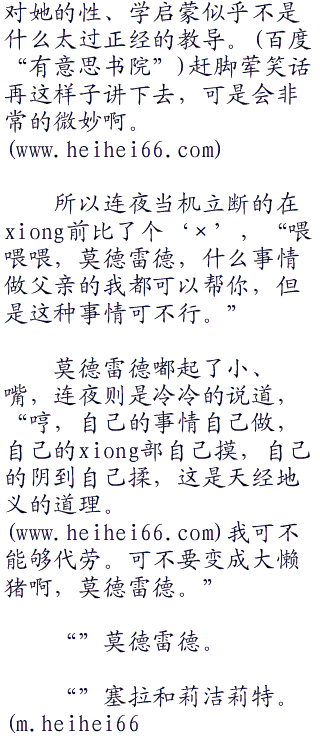 对她的性、学启蒙似乎不是
什么太过正经的教导。(百度
“有意思书院”)赶脚荤笑话
再这样子讲下去，可是会非
常的微妙啊。
(www.heihei66.com)
所以连夜当机立断的在
xiong前比了个‘×’，“喂
喂喂，莫德雷德，什么事情
做父亲的我都可以帮你，但
是这种事情可不行。”
莫德雷德嘟起了小、
嘴，连夜则是冷冷的说道，
“哼，自己的事情自己做，
自己的xiong部自己摸，自己
的阴到自己揉，这是天经地
义的道理。
(www.heihei66.com)我可不
能够代劳。可不要变成大懒
猪啊，莫德雷德。”
“”莫德雷德。
“”塞拉和莉洁莉特。
(m.heihei66